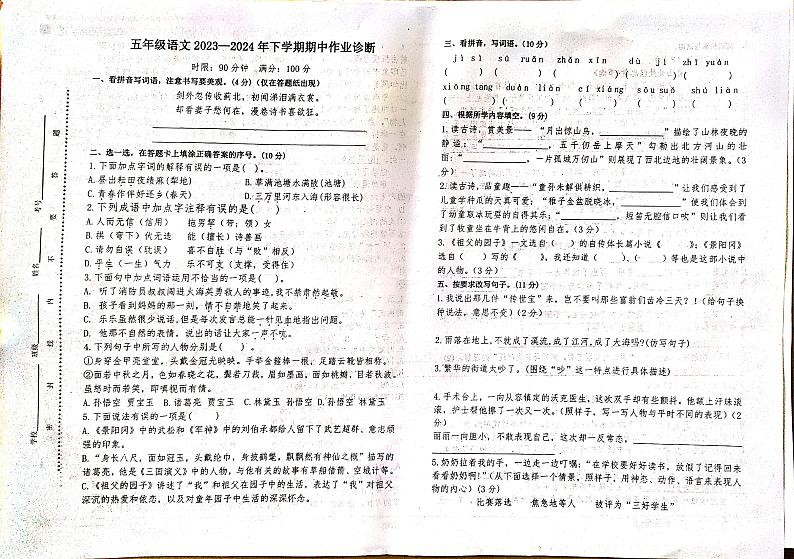 五年级语文 2023—2024 年下学期期中作业诊断
时限：90分钟 满分：100分
一、看拼音写词语，注意书写要美观。(4分)（仅在答题纸出现）
剑外忽传收蓟北，初闻涕泪满衣裳。
却看妻子愁何在，漫卷诗书喜欲狂。
二、选一选，在答题卡上填涂正确答案的序号。(10分)
1.下面加点字词的解释有误的一项是( )。
A.昼出耘田夜绩麻(犁地) B.草满池塘水满陂(池塘)
C.青春作伴好还乡(春天) D.三万里河东入海(形容很长)
2.下列成语中加点字注释有误的是( )
A.人而无信（信用） 抱男挈（带；领）女
B.拱（弯下）优无迹 能（擅长）诗善画
C.请勿自误（耽误） 喜不自胜（与“败”相反）
D.平生（一生）气力 乐不可支（支撑，受得住）
3.下面句中加点词语运用不恰当的一项是( )。
A. 听了消防员叔叔闯进大海英勇救人的事迹，我不禁肃然起敬。
B. 孩子看到妈妈的那一刻，情不自禁地笑了起来。
C. 乐乐虽然很少说话，但是每次发言总能一针见血地指出问题。
D. 他那不自然的表情，说出的话让大家一声不吭。
4.下列句子中所写的人物分别是( )。
①身穿金甲亮堂堂，头戴金冠光映映。手举金箍棒一根，足踏云靴皆相称。
②面若中秋之月，色如春晓之花，鬓若刀裁，眉如墨画，面如桃瓣，目若秋波。
虽怒时而若笑，即嗔视而有情。
A.孙悟空 贾宝玉 B.诸葛亮 贾宝玉 C.林黛玉 孙悟空 D.孙悟空 林黛玉
5.下面说法有误的一项是( )
A.《景阳冈》中的武松和《军神》中的刘伯承都给人留下了武艺超群、意志顽
强的印象。
B.“身长八尺，面如冠玉，头戴纶巾，身披鹤氅，飘飘然有神仙之概”描写的
诸葛亮，他是《三国演义》中的人物，与他有关的故事有草船借箭、空城计等。
C.《祖父的园子》讲述了“我”和祖父在园子中的生活，表达了“我”对祖父
深沉的热爱和依恋，以及对童年园子中生活的深深怀念。
三、看拼音，写词语。(10分)
jì sì sú ruǎn zhān xīn dù jì zhī yuán
( ) ( ) ( ) ( ) ( )
xiōng táng duàn liàn cí xiáng sōu suǒ shú liàn
( ) ( ) ( ) ( ) ( )
四、根据所学内容填空。(9分)
1.读古诗，赏美景—— “月出惊山鸟，＿＿＿＿”描绘了山林夜晚的
静谧；“＿＿＿＿，五千仞岳上摩天”勾勒出北方河山的壮
丽；“＿＿＿＿，一片孤城万仞山”则展现了西北边地的壮阔景象。(3
分)
2.读古诗，品童趣——“童孙未解供耕织，＿＿＿＿”让我们感受到了
儿童学种瓜的天真可爱；“稚子金盆脱晓冰，＿＿＿＿”使我们体会到
了幼童取冰玩耍的自得其乐；“＿＿＿＿，短笛无腔信口吹”则让我们看
到了牧童坐在牛背上的悠闲自在。(3分)
3.《祖父的园子》一文选自（ ）的自传体长篇小说《 》；《景阳冈》
选自（ ）写的《 》，我还知道（ ）、（ ）等也是这部小说中
的人物。(3分)
五、按要求改写句子。(11分)
1.我说出那几件“传世宝”来，岂不要叫那些富豪们齿冷三天？！（给句子换
种说法，意思不变）(2分)
2.雨落在地上，不就成了溪流，成了江河，成了大海吗？(仿写句子)
3.繁华的街道太吵了。(围绕“吵”这一特点进行具体描述)
4.手术台上，一向从容镇定的沃克医生，这次双手却有些颤抖，他额上汗珠滚
滚，护士帮他擦了一次又一次。（照样子，写一写人物与平时不同的表现）(2
分)
丽丽一向胆小，不敢表现自己，这次却一反常态，＿＿＿＿
5.奶奶拉着我的手，一边走一边叮嘱：“在学校要好好读书，放假了记得回来
看看奶奶啊！”（从下面选择一个情景，照样子，用神态、动作、语言来表现人
物的内心）(3分)
比赛落选 焦急地等人 被评为“三好学生”
学校
班级
姓名
考号
密 封 线 内 不 要 答 题